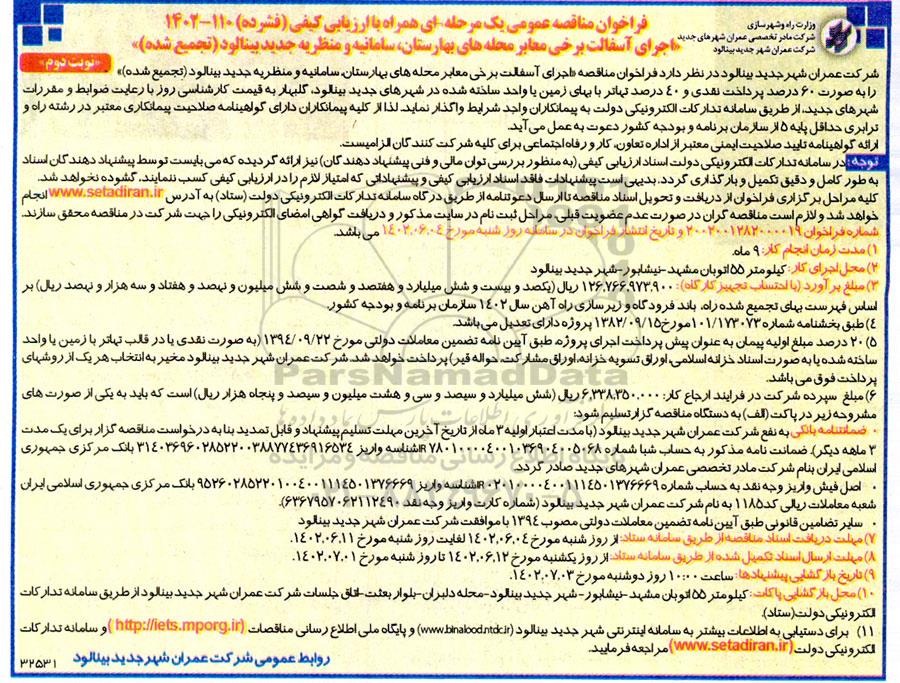 وزارت راه و شهرسازی
شرکت مادر تخصصی عمران شهرهای جدید
شرکت عمران شهر جدید بینالود
فراخوان مناقصه عمومی یک مرحله-ای همراه با ارزیابی کیفی (فشرده) ۱۱۰-۱۴۰۲
«اجرای آسفالت برخی معابر محله های بهارستان، سامانیه و منظریه جدید بینالود (تجمیع شده)»
«نوبت دوم»
شرکت عمران شهر جدید بینالود در نظر دارد فراخوان مناقصه «اجرای آسفالت برخی معابر محله های بهارستان، سامانیه و منظریه جدید بینالود (تجمیع شده)»
را به صورت ۶۰ درصد پرداخت نقدی و ۴۰ درصد تهاتر با بهای زمین یا واحد ساخته شده در شهرهای جدید بینالود، گلبهار به قیمت کارشناسی روز با رعایت ضوابط و مقررات
شهرهای جدید، از طریق سامانه تدارکات الکترونیکی دولت به پیمانکاران واجد شرایط واگذار نماید. لذا از کلیه پیمانکاران دارای گواهینامه صلاحیت پیمانکاری معتبر در رشته راه و
ترابری حداقل پایه ۵ از سازمان برنامه و بودجه کشور دعوت به عمل می آید.
ارائه گواهینامه تایید صلاحیت ایمنی معتبر از اداره تعاون، کار و رفاه اجتماعی برای کلیه شرکت کنندگان الزامیست.
توجه: در سامانه تدارکات الکترونیکی دولت اسناد ارزیابی کیفی (به منظور بررسی توان مالی و فنی پیشنهاد دهندگان) نیز ارائه گردیده که می بایست توسط پیشنهاد دهندگان اسناد
به طور کامل و دقیق تکمیل و بارگذاری گردد. بدیهی است پیشنهادات فاقد اسناد ارزیابی کیفی و پیشنهاداتی که امتیاز لازم را در ارزیابی کیفی کسب ننمایند، گشوده نخواهد شد.
کلیه مراحل برگزاری فراخوان از دریافت و تحویل اسناد مناقصه تا ارسال دعوتنامه از طریق درگاه سامانه تدارکات الکترونیکی دولت (ستاد) به آدرس www.setadiran.ir انجام
خواهد شد و لازم است مناقصه گران در صورت عدم عضویت قبلی، مراحل ثبت نام در سایت مذکور و دریافت گواهی امضای الکترونیکی را جهت شرکت در مناقصه محقق سازند.
شماره فراخوان ۲۰۰۲۰۰۱۲۸۲۰۰۰۰۱۹ و تاریخ انتشار فراخوان در سامانه روز شنبه مورخ ۱۴۰۲.۰۶.۰۴ می باشد.
۱) مدت زمان انجام کار: ۹ ماه.
۲) محل اجرای کار: کیلومتر ۵۵ اتوبان مشهد-نیشابور-شهر جدید بینالود
۳) مبلغ برآورد (با احتساب تجهیز کارگاه): ۱۲۶.۷۶۶.۹۷۳.۹۰۰ ریال (یکصد و بیست و شش میلیارد و هفتصد و شصت و شش میلیون و نهصد و هفتاد و سه هزار و نهصد ریال) بر
اساس فهرست بهای تجمیع شده راه، باند فرودگاه و زیرسازی راه آهن سال ۱۴۰۲ سازمان برنامه و بودجه کشور.
۴) طبق بخشنامه شماره ۱۰۱/۱۷۳۰۷۳ مورخ ۱۳۸۲/۰۹/۱۵ پروژه دارای تعدیل می باشد.
۵) ۲۰ درصد مبلغ اولیه پیمان به عنوان پیش پرداخت اجرای پروژه، طبق آیین نامه تضمین معاملات دولتی مورخ ۱۳۹۴/۰۹/۲۲ (به صورت نقدی یا در قالب تهاتر با زمین یا واحد
ساخته شده یا به صورت اسناد خزانه اسلامی، اوراق تسویه خزانه، اوراق مشارکت، حواله قیر) پرداخت خواهد شد. شرکت عمران شهر جدید بینالود مخیر به انتخاب هر یک از روشهای
پرداخت فوق می باشد.
۶) مبلغ سپرده شرکت در فرایند ارجاع کار: ۶.۳۳۸.۳۵۰.۰۰۰ ریال (شش میلیارد و سیصد و سی و هشت میلیون و سیصد و پنجاه هزار ریال) است که باید به یکی از صورت های
مشروحه زیر در پاکت (الف) به دستگاه مناقصه گزار تسلیم شود:
• ضمانتنامه بانکی به نفع شرکت عمران شهر جدید بینالود (با مدت اعتبار اولیه ۳ ماه از تاریخ آخرین مهلت تسلیم پیشنهاد و قابل تمدید بنا به درخواست مناقصه گزار برای یک مدت
۳ ماهه دیگر). ضمانت نامه مذکور به حساب شبا شماره
اسلامی ایران بنام شرکت مادر تخصصی عمران شهرهای جدید صادر گردد.
• اصل فیش واریز وجه نقد به حساب شماره
شعبه معاملات ریالی کد ۱۱۸۵ به نام شرکت عمران شهر جدید بینالود (شماره کارت واریز وجه نقد ۶۳۶۷۹۵۷۰۶۲۱۱۲۴۹۰).
• سایر تضامین قانونی طبق آیین نامه تضمین معاملات دولتی مصوب ۱۳۹۴ با موافقت شرکت عمران شهر جدید بینالود
۷) مهلت دریافت اسناد مناقصه از طریق سامانه ستاد: از روز شنبه مورخ ۱۴۰۲.۰۶.۰۴ لغایت روز شنبه مورخ ۱۴۰۲.۰۶.۱۱.
۸) مهلت ارسال اسناد تکمیل شده از طریق سامانه ستاد: از روز یکشنبه مورخ ۱۴۰۲.۰۶.۱۲ تا روز شنبه مورخ ۱۴۰۲.۰۷.۰۱.
۹) تاریخ بازگشایی پیشنهادها: ساعت ۱۰:۰۰ روز دوشنبه مورخ ۱۴۰۲.۰۷.۰۳.
۱۰) محل بازگشایی پاکات: کیلومتر ۵۵ اتوبان مشهد-نیشابور-شهر جدید بینالود-محله دلبران-بلوار بعثت-اتاق جلسات شرکت عمران شهر جدید بینالود از طریق سامانه تدارکات
الکترونیکی دولت (ستاد).
۱۱) برای دستیابی به اطلاعات بیشتر به سامانه اینترنتی شهر جدید بینالود (www.binalood.ntdc.ir) و پایگاه ملی اطلاع رسانی مناقصات (http://iets.mporg.ir) و سامانه تدارکات
الکترونیکی دولت (www.setadiran.ir) مراجعه فرمایید.
روابط عمومی شرکت عمران شهر جدید بینالود
۳۲۵۳۱
ParsNamadData